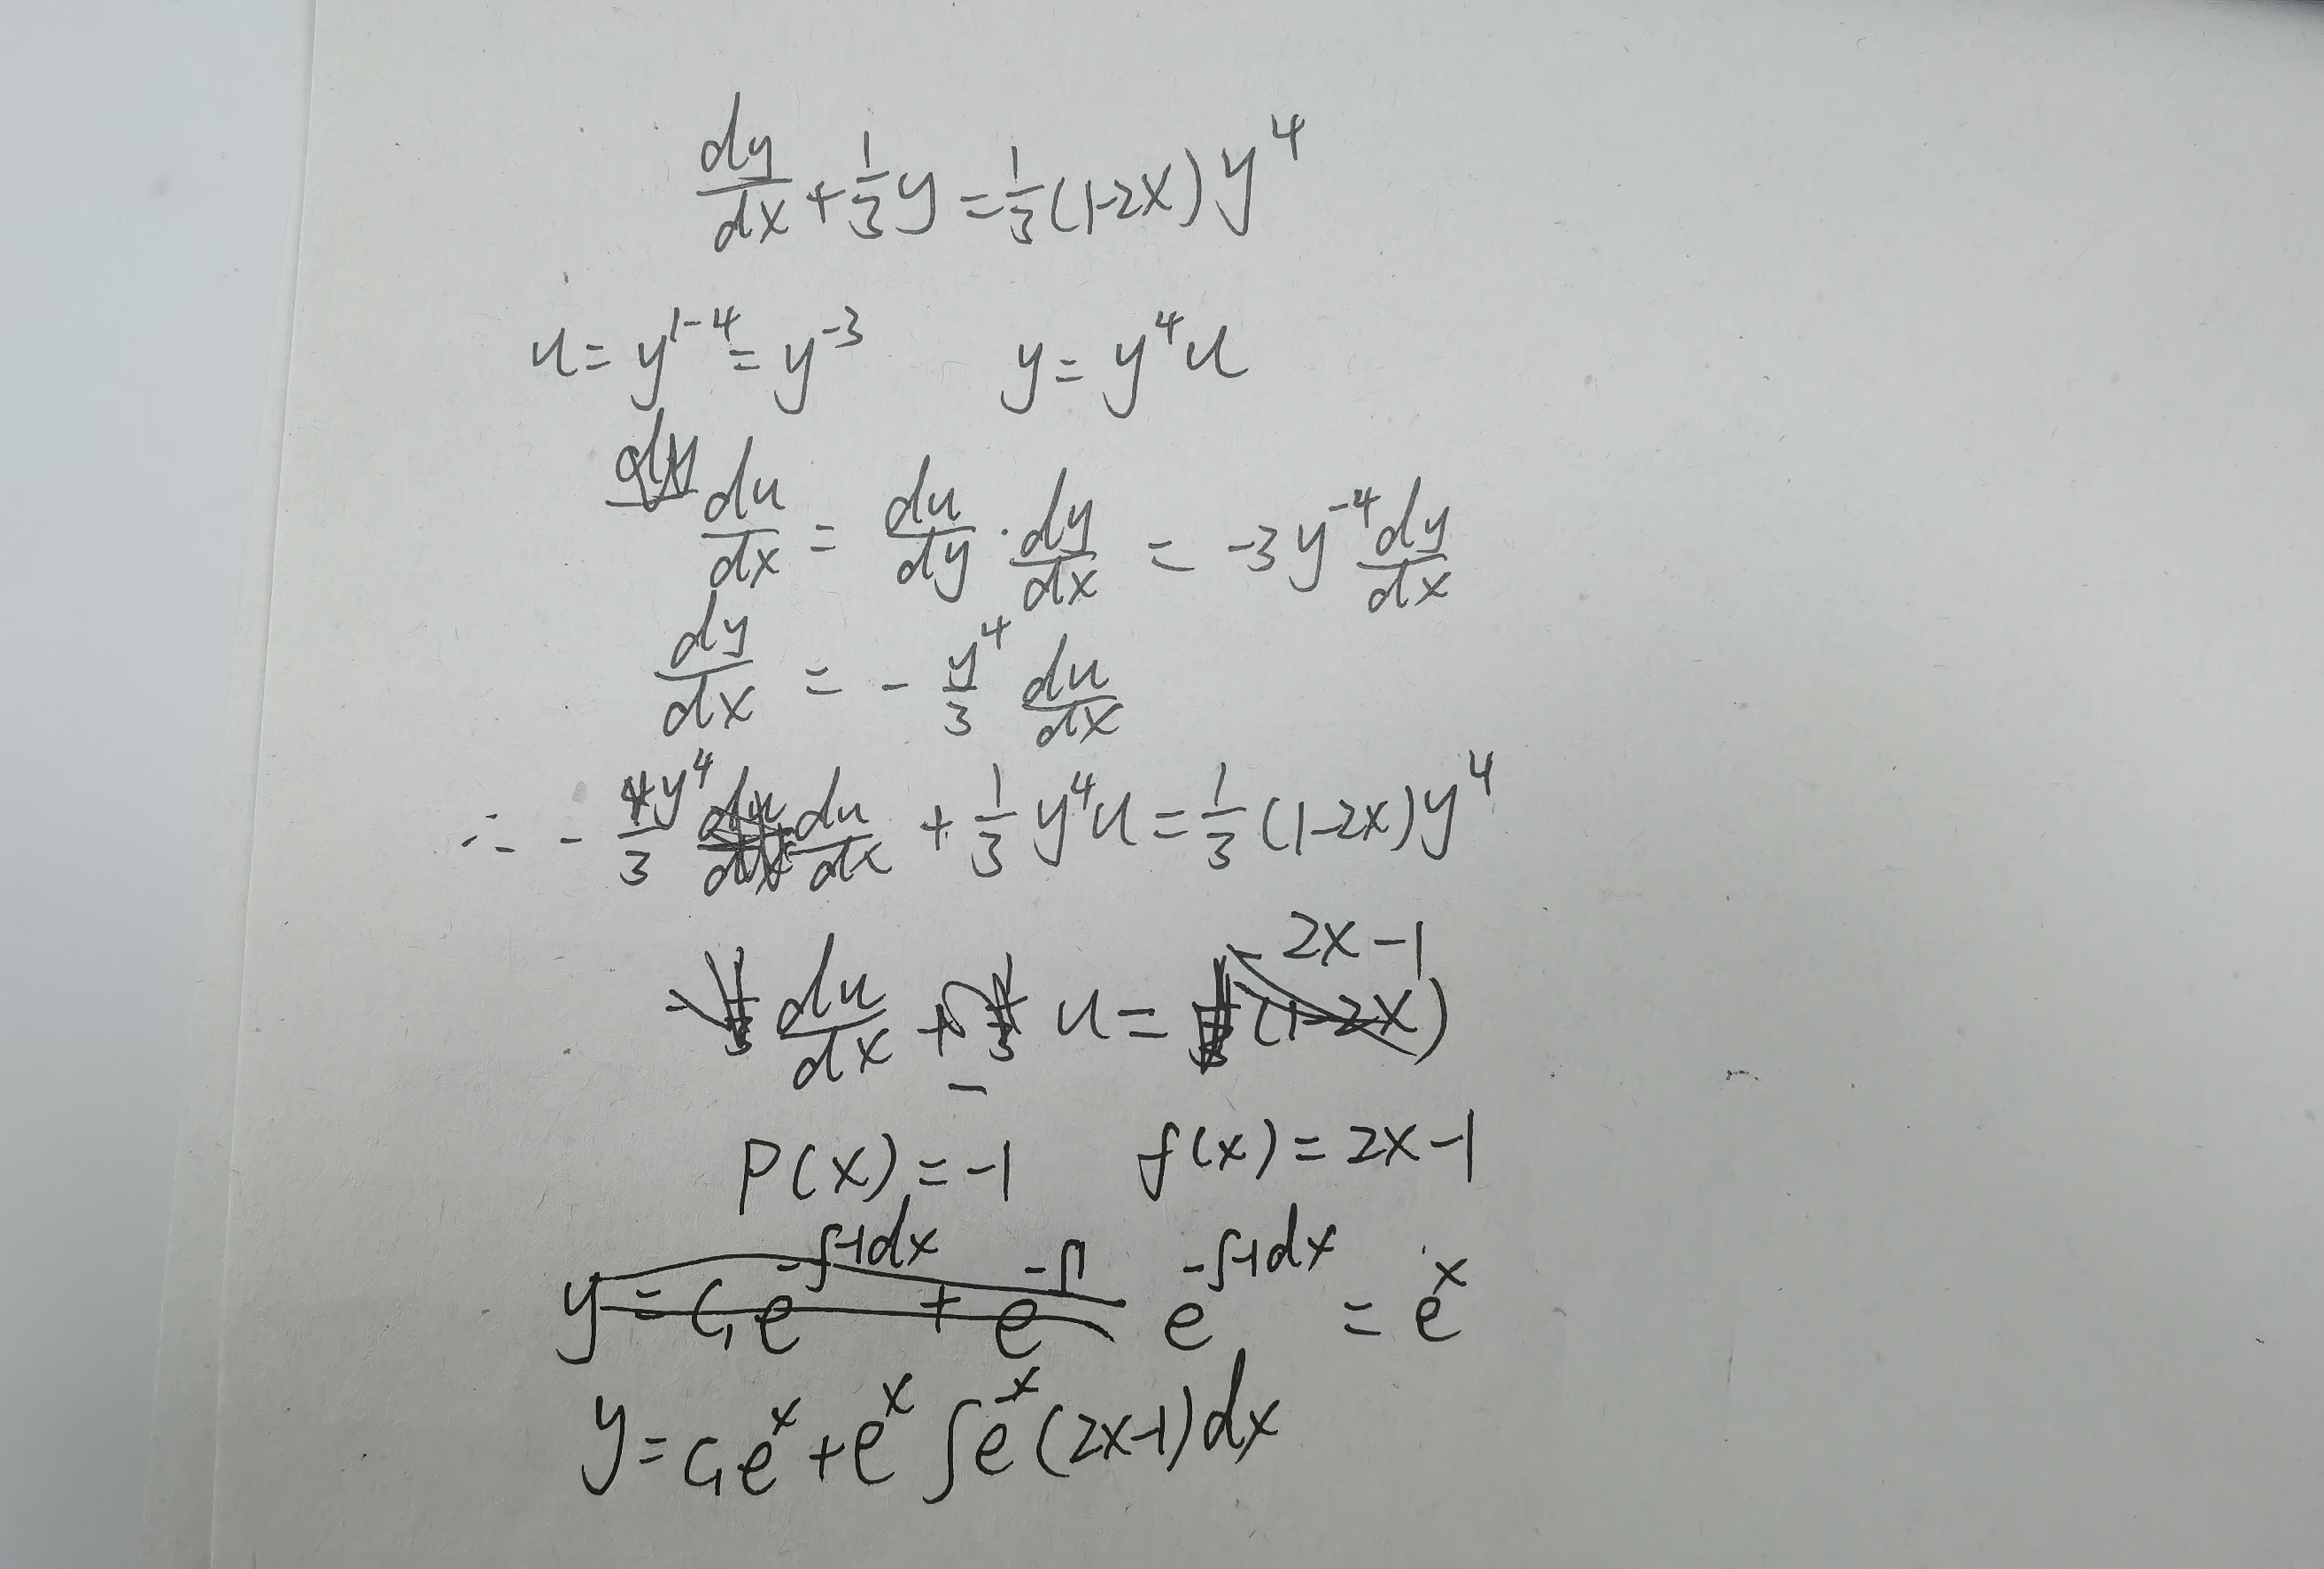 dy/dx + 1/3 y = 1/3 (1-2x) y^4
u = y^{1-4} = y^{-3} y = y^4 u
du/dx = du/dy · dy/dx = -3y^{-4} dy/dx
dy/dx = - y^4/3 du/dx
∴ - y^4/3 du/dx + 1/3 y^4 u = 1/3 (1-2x) y^4
du/dx - u = 2x-1
P(x) = -1 f(x) = 2x-1
y = C₁e^{-∫-1dx} + e^{-∫1} e^{-∫-1dx} = e^x
y = C₁e^x + e^x ∫e^{-x} (2x-1) dx